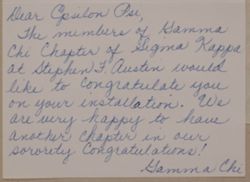 Dear Epsilon Psi,
The members of Gamma
Chi Chapter of Sigma Kappa
at Stephen F. Austin would
like to congratulate you
on your installation. We
are very happy to have
another chapter in our
sorority Congratulations!
Gamma Chi